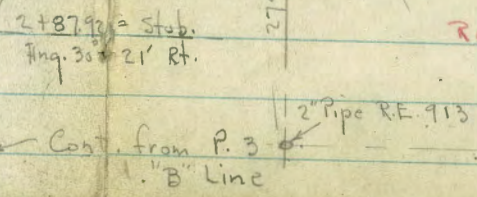 2+87.92 = Stob.
27
R.
Ang. 30° 21' Rt.
2" Pipe R.E. 913
Cont. from P. 3
"B" Line